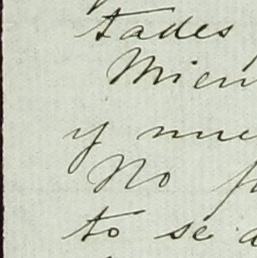 tades
Mien
y nue
No
to se